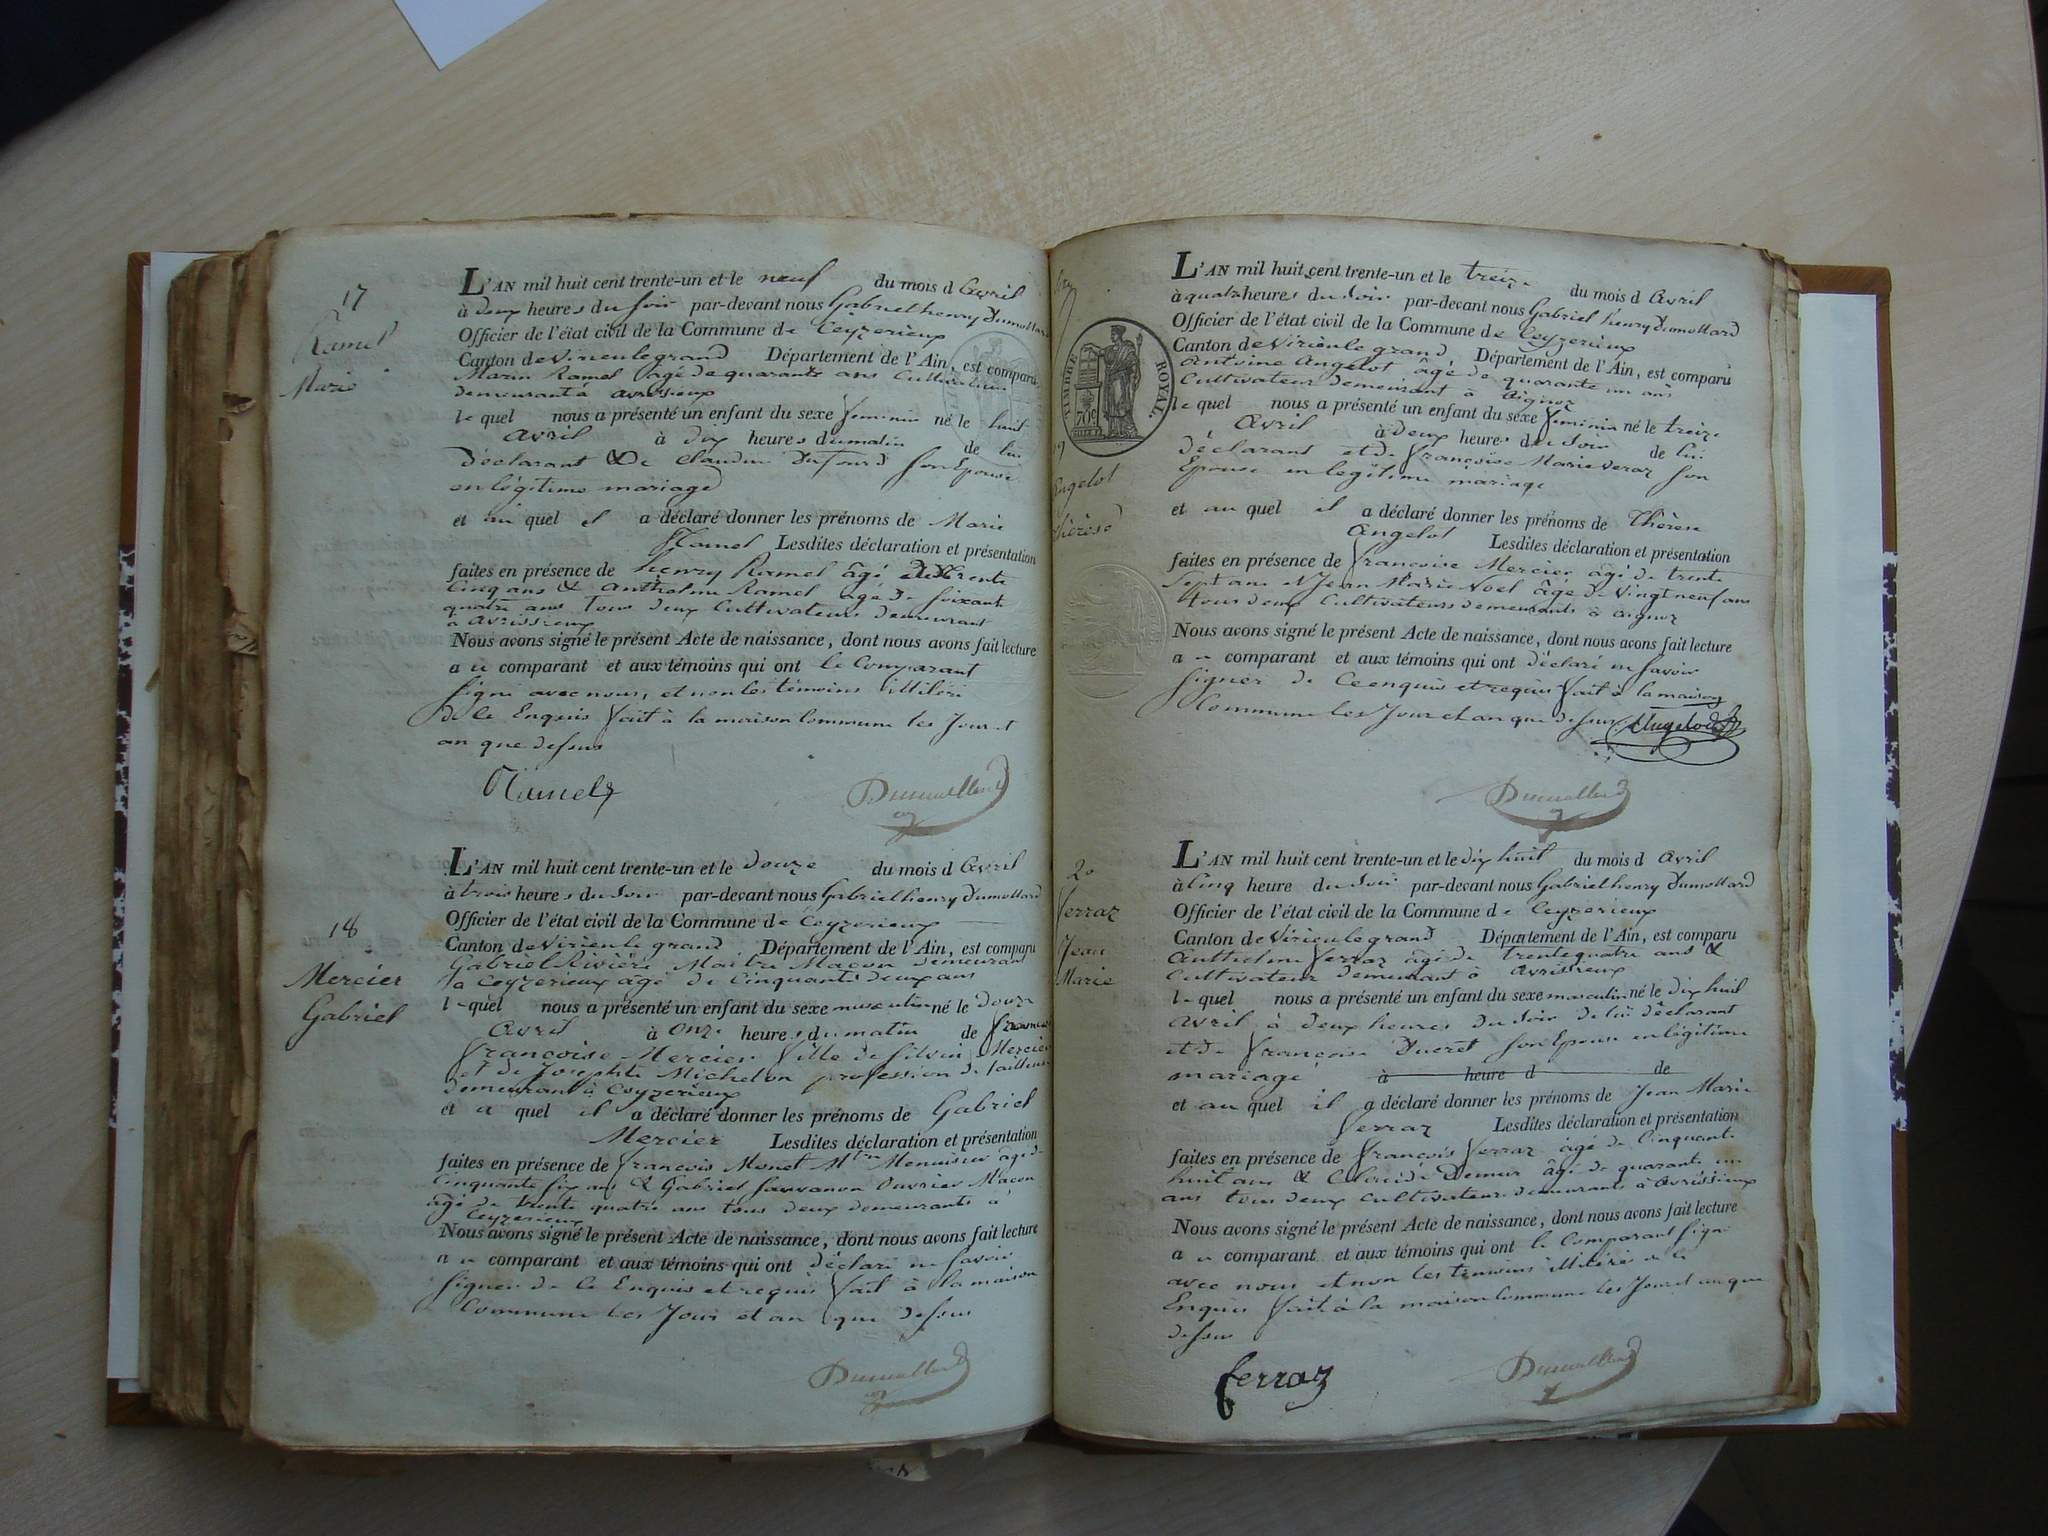 17
Ramel
Marie
L'AN mil huit cent trente-un et le neuf du mois d Avril
à deux heures du soir par-devant nous Gabriel henry Dumollard
Officier de l'état civil de la Commune de Ceyzerieux
Canton de virieulegrand Département de l'Ain, est comparu
Marin Ramel âgé de quarante ans Cultivateur
demeurant à avrissieux
le quel nous a présenté un enfant du sexe feminin né le huit
Avril à dix heures du matin de lui
déclarant & de Claudine Dufour son Epouse
en légitime mariage
et au quel il a déclaré donner les prénoms de Marie
Ramel Lesdites déclaration et présentation
faites en présence de henry Ramel âgé de trente
Cinq ans & Anthelme Ramel âgé de soixante
quatre ans Tous deux Cultivateurs demeurant
à Avrissieux
Nous avons signé le présent Acte de naissance, dont nous avons fait lecture
a ce comparant et aux témoins qui ont le Comparant
signé avec nous, et non les témoins illiteré
de ce Enquis fait à la maison Commune les Jour et
an que dessus
Ramel
Dumollard
18
Mercier
Gabriel
L'AN mil huit cent trente-un et le douze du mois d Avril
à trois heures du soir par-devant nous Gabriel henry Dumollard
Officier de l'état civil de la Commune de Ceyzerieux
Canton de Virieu le grand Département de l'Ain, est comparu
Gabriel Rivière Maître Maçon demeurant
à Ceyzerieux âgé de Cinquante deux ans
le quel nous a présenté un enfant du sexe masculin né le douze
Avril à onze heures du matin de
françoise Mercier fille de Silvin Mercier
et de Josephte Michelon profession de tailleuse
demeurant à Ceyzerieux
et au quel il a déclaré donner les prénoms de Gabriel
Mercier Lesdites déclaration et présentation
faites en présence de françois Monet Mtre Menuisier âgé de
Cinquante six ans & Gabriel Savvanon Ouvrier Maçon
âgé de trente quatre ans tous deux demeurants à
Ceyzerieux
Nous avons signé le présent Acte de naissance, dont nous avons fait lecture
a ce comparant et aux témoins qui ont déclaré ne savoir
signer de ce Enquis et requis fait à la maison
Commune les Jour et an que dessus
Dumollard
TIMBRE ROYAL.
70c
19
Angelot
thérèse
L'AN mil huit cent trente-un et le treize du mois d Avril
à quatre heures du soir par-devant nous Gabriel henry Dumollard
Officier de l'état civil de la Commune de Ceyzerieux
Canton de Virieu le grand Département de l'Ain, est comparu
Antoine Angelot âgé de quarante un ans
Cultivateur demeurant à Aignoz
le quel nous a présenté un enfant du sexe feminin né le treize
Avril à deux heures du soir de lui
déclarant et de françoise Marie Veraz son
Epouse en légitime mariage
et au quel il a déclaré donner les prénoms de Thérèse
Angelot Lesdites déclaration et présentation
faites en présence de françoise Mercier âgé de trente
Sept ans et Jean Marie Noel âgé de vingt neuf ans
tous deux Cultivateurs demeurants à aignoz
Nous avons signé le présent Acte de naissance, dont nous avons fait lecture
a ce comparant et aux témoins qui ont déclaré ne savoir
signer de Ce enquis et requis fait à la maison
Commune les Jour et an que dessus Angelod
Dumollard
20
ferraz
Jean
Marie
L'AN mil huit cent trente-un et le dix huit du mois d Avril
à Cinq heure du soir par-devant nous Gabriel henry Dumollard
Officier de l'état civil de la Commune de Ceyzerieux
Canton de Virieulegrand Département de l'Ain, est comparu
Anthelme ferraz âgé de trente quatre ans &
Cultivateur demeurant à Avrissieux
le quel nous a présenté un enfant du sexe masculin né le dix huit
Avril à deux heures du soir de lui déclarant
et de françoise Ducret son Epouse en légitime
mariage à heure d de
et au quel il a déclaré donner les prénoms de Jean Marie
ferraz Lesdites déclaration et présentation
faites en présence de françois ferraz âgé de Cinquante
huit ans & Claude Demur âgé de quarante un
ans tous deux cultivateurs demeurants à Avrissieux
Nous avons signé le présent Acte de naissance, dont nous avons fait lecture
a ce comparant et aux témoins qui ont le Comparant signé
avec nous et non les témoins illiteré de ce
Enquis fait à la maison Commune les Jour et an que
dessus
ferraz
Dumollard